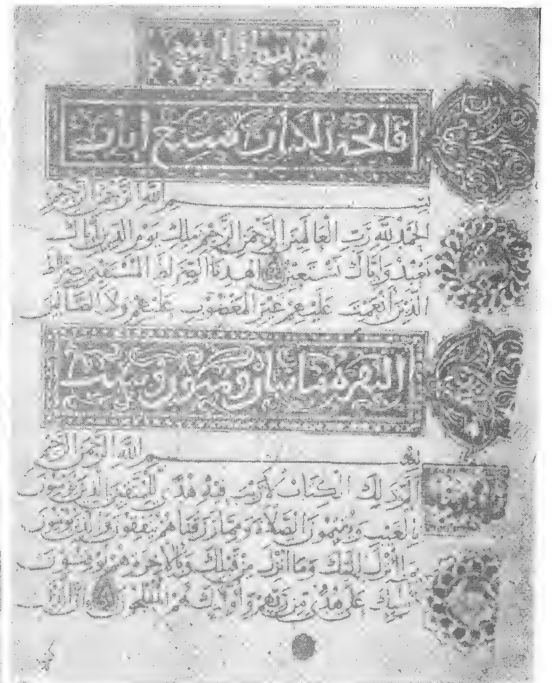 فاتحة الكتاب سبع ايات
بسم الله الرحمن الرحيم
الحمد لله رب العالمين الرحمن الرحيم ملك يوم الدين اياك
نعبد واياك نستعين اهدنا الصراط المستقيم صراط
الذين انعمت عليهم غير المغضوب عليهم ولا الضالين
البقرة مايتان وثمنون وست
بسم الله الرحمن الرحيم
الم ذلك الكتاب لا ريب فيه هدى للمتقين الذين يومنون
بالغيب ويقيمون الصلاة ومما رزقناهم ينفقون والذين يومنون
بما انزل اليك وما انزل من قبلك وبالاخرة هم يوقنون
اوليك على هدى من ربهم واوليك هم المفلحون ان الذين